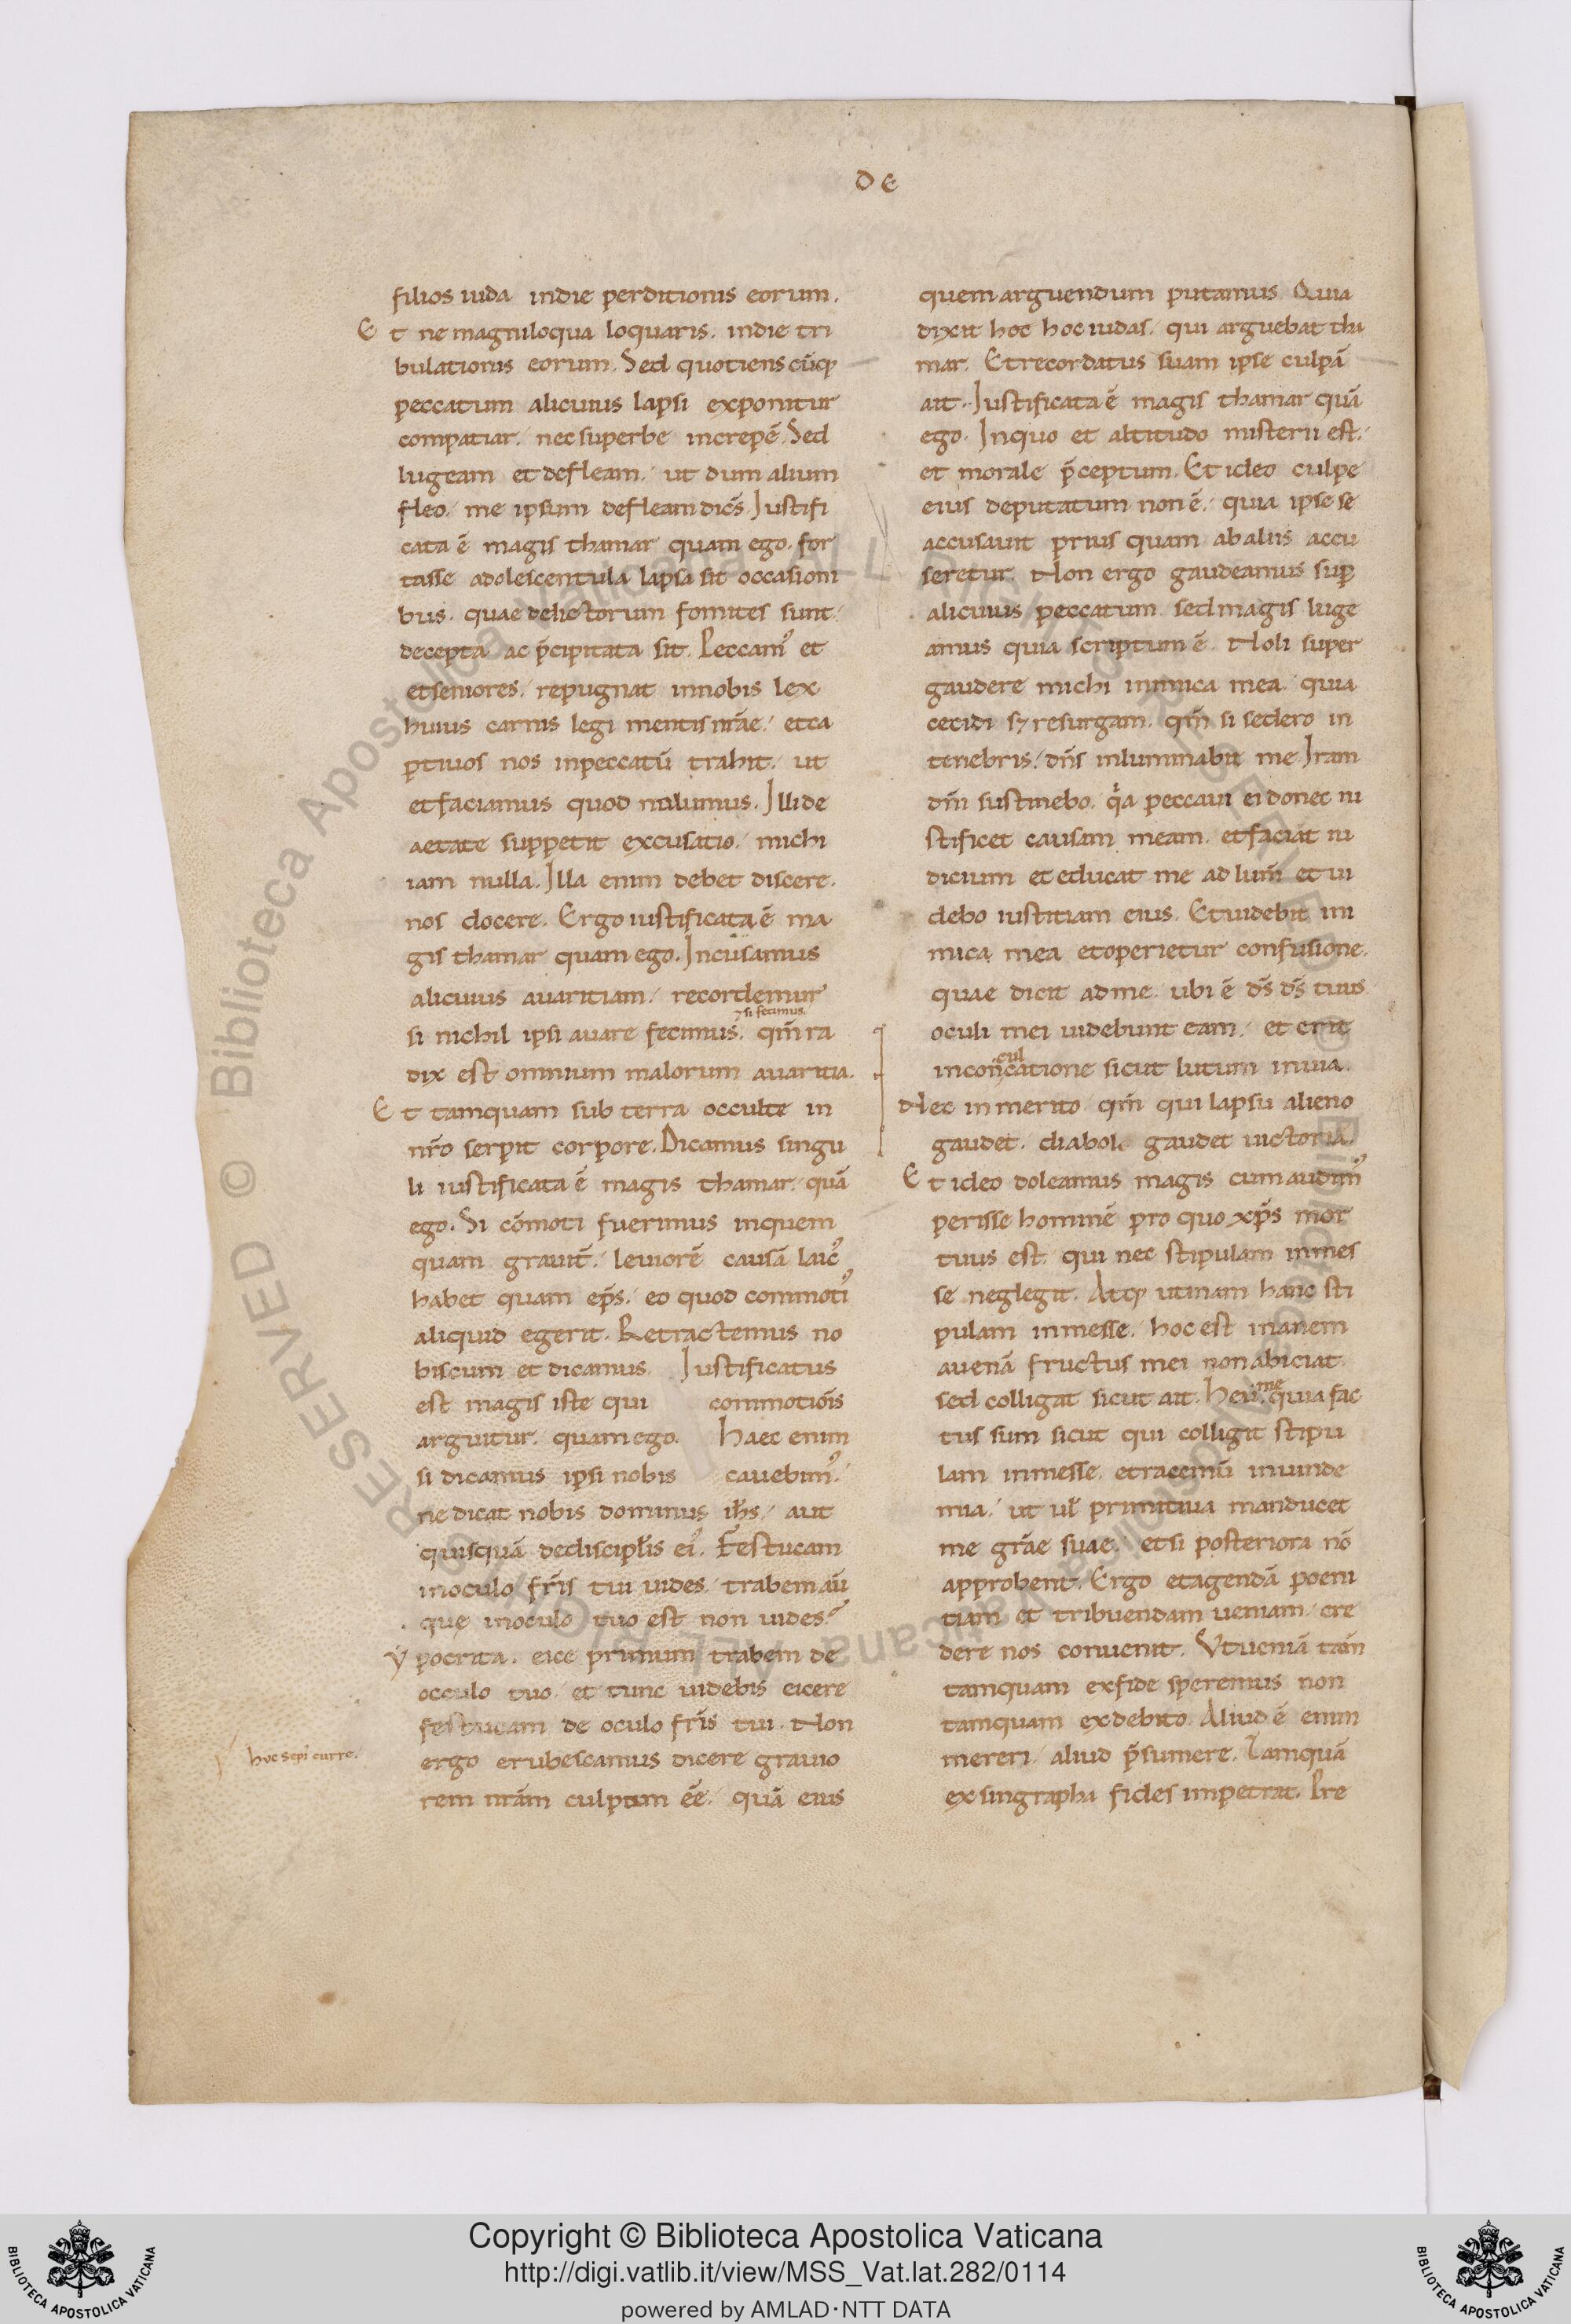 DE
filios iuda indie perditionis eorum.
Et ne magniloqua loquaris. indie tri
bulationis eorum. Sed quotiens cūq;
peccatum alicuius lapsi exponitur
compatiar. nec superbe increpē. Sed
lugeam et defleam. ut dum alium
fleo. me ipsum defleam dicēs. Iustifi
cata ē magis thamar quam ego. for
tasse adolescentula lapsa sit occasioni
bus. quae delictorum fomites sunt.
decepta ac p̄cipitata sit. Peccam᾽ et
et seniores. repugnat innobis lex
huius carnis legi mentis nr̄ae. et ca
ptiuos nos inpeccatū trahit. ut
et faciamus quod nulumus. Illi de
aetate suppetit excusatio. michi
iam nulla. Illa enim debet discere.
nos docere. Ergo iustificata ē ma
gis thamar quam ego. Incusamus
alicuius auaritiam. recordemur
⁊ si fecimus.
si nichil ipsi auare fecimus. qm̄ ra
dix est omnium malorum auaritia.
Et tamquam sub terra occulte in
nr̄o serpit corpore. Dicamus singu
li iustificata ē magis thamar. quā
ego. Si cōmoti fuerimus inquem
quam grauit̄. leuiorē causā laic᾽
habet quam ep̄s. eo quod commoti᾽
aliquid egerit. Retractemus no
biscum et dicamus. Iustificatus
est magis iste qui commotiōis
arguitur. quam ego. Haec enim
si dicamus ipsi nobis cauebim᾽.
ne dicat nobis dominus ih̄s. aut
quisquā dediscipl̄is ei᾽. Festucam
inoculo fr̄is tui uides. trabem aū
quę inoculo tuo est non uides?
ẏpocrita. eice primum trabem de
occulo tuo. et tunc uidebis eicere
festucam de oculo fr̄is tui. Non
huc sepi curre.
ergo erubescamus dicere grauio
rem nr̄am culpam ēē. quā eius
quem arguendum putamus. Quia
dixit hoc hoc iudas. qui arguebat tha
mar. Et recordatus suam ipse culpā
ait. Iustificata ē magis thamar quā
ego. Inquo et altitudo misterii est.
et morale p̄ceptum. Et ideo culpe
eius deputatum non ē. quia ipse se
accusauit prius quam abaliis accu
seretur. Non ergo gaudeamus sup̱
alicuius peccatum. sed magis luge
amus quia scriptum ē. Noli super
gaudere michi inimica mea. quia
cecidi s; resurgam. qm̄ si sedero in
tenebris. dn̄s inluminabit me. Iram
dn̄i sustinebo. q̇a peccaui ei donec iu
stificet causam meam. et faciat iu
dicium et educat me ad lum̄ et ui
debo iustitiam eius. Et uidebit ini
mica mea et operietur confusione.
quae dicit adme. ubi ē ds̄ ds̄ tuus.
oculi mei uidebunt eam. et erit
cul
inconcatione sicut lutum inuia.
Nec inmerito qm̄ qui lapsu alieno
gaudet. diaboli gaudet uictoria.
Et ideo doleamus magis cum audim᾽
perisse hominē pro quo xp̄s mor
tuus est. qui nec stipulam inmes
se neglegit. Atq; utinam hanc sti
pulam inmesse. hoc est inanem
auenā fructus mei non abiciat.
me
sed colligat sicut ait. Heu. quia fac
tus sum sicut qui colligit stipu
lam inmesse. et racemū inuinde
mia. ut ul̄ primitiua manducet
me gr̄ae suae. etsi posteriora nō
approbent. Ergo et agendā poeni
tiam et tribuendam ueniam. cre
dere nos conuenit. Ut ueniā tām
tamquam exfide speremus non
tamquam exdebito. Aliud ē enim
mereri. aliud p̄sumere. Tamquā
exsingrapha fides impetrat. Pre
Copyright © Biblioteca Apostolica Vaticana
http://digi.vatlib.it/view/MSS_Vat.lat.282/0114
powered by AMLAD·NTT DATA